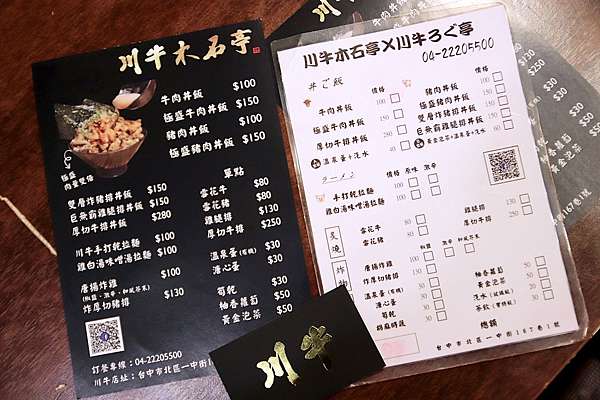 川牛木石亭
牛肉丼飯 $100
極盛牛肉丼飯 $150
豬肉丼飯 $100
極盛豬肉丼飯 $150
極盛
肉量雙倍
雙層炸豬排丼飯 $150
巨無霸雞腿排丼飯 $150
厚切牛排丼飯 $280
川牛手打乾拉麵 $100
雞白湯味噌湯拉麵 $100
唐揚炸雞 $100
炸厚切豬排 $130
單點
雪花牛 $80
雪花豬 $80
雞腿排 $130
厚切牛排 $250
溫泉蛋(有機) $30
溏心蛋 $30
筍乾 $30
柚香蘿蔔 $50
黃金泡菜 $50
訂餐專線：04-22205500
川牛店址：台中市北區一中街1
川牛木石亭X川牛ろぐ亭
04-22205500
丼ご飯
價格
牛肉丼飯 100
極盛牛肉丼飯 150
厚切牛排丼飯 280
溫泉蛋+淺水 40
價格
豬肉丼飯 100
極盛豬肉丼飯 150
雙層炸豬排丼飯 150
巨無霸雞腿排丼飯 150
黃金泡菜+溫泉蛋+淺水 60
ラーメン
價格 原味 激辛
手打乾拉麵 100
雞白湯味噌湯拉麵 100
炙燒
雪花牛 80
雪花豬 80
雞腿排 130
厚切牛排 250
炸物
唐揚炸雞 100
厚切炸豬排 130
溫泉蛋(有機) 30
溏心蛋 30
筍乾 30
胡麻時蔬 50
柚香蘿蔔 50
黃金泡菜 50
總額
台中市北區一中街167巷1號
川牛